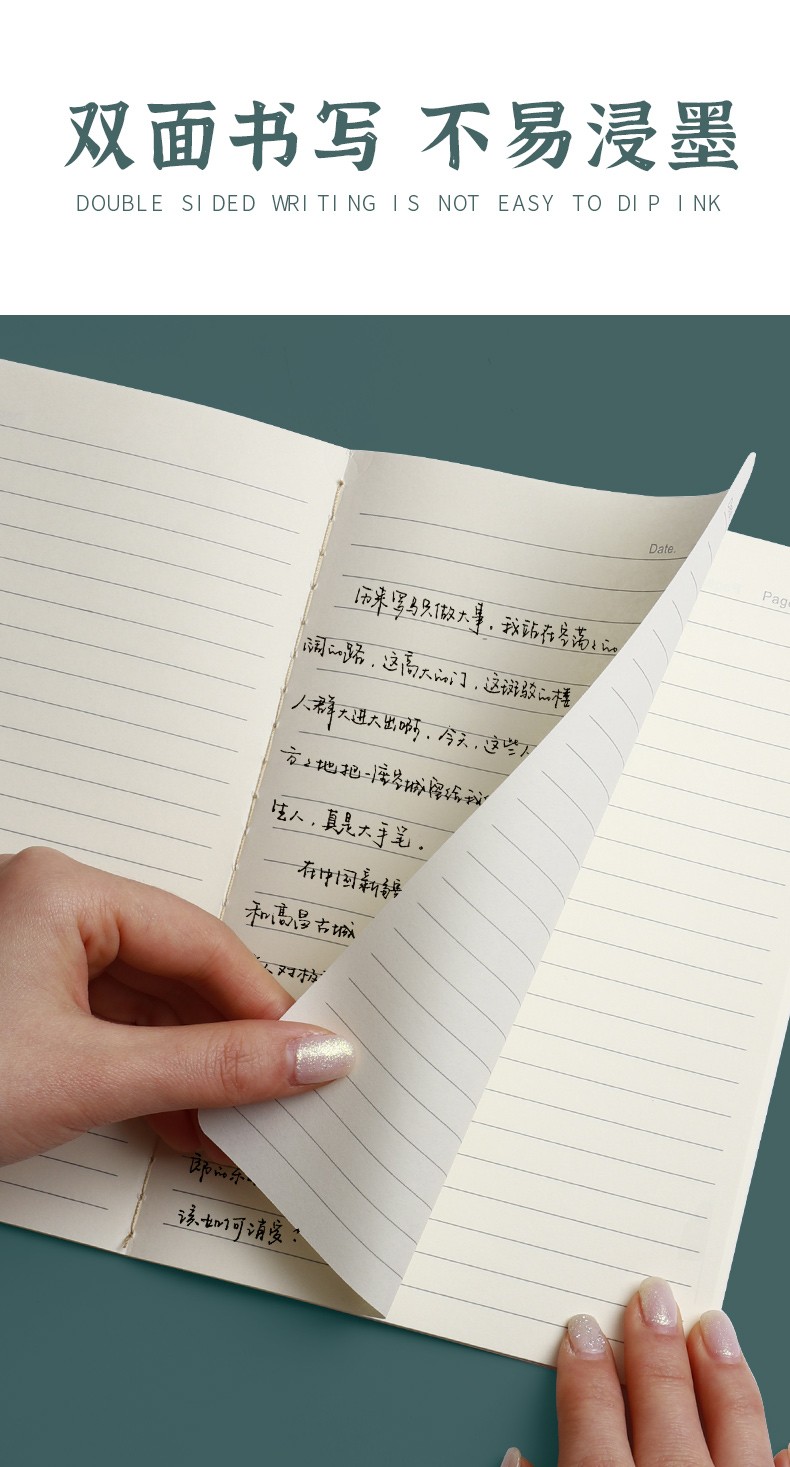 双面书写 不易浸墨
DOUBLE SIDED WRITING IS NOT EASY TO DIP INK
Date.
Page
历来罗马只做大事。我站在空荡荡的
阔的路，这高大的门，这斑驳的楼
人群大进大出啊，今天，这些人
方方地把一座空城留给我
生人，真是大手笔。
在中国新疆
和高昌古城
对
该如何消受？